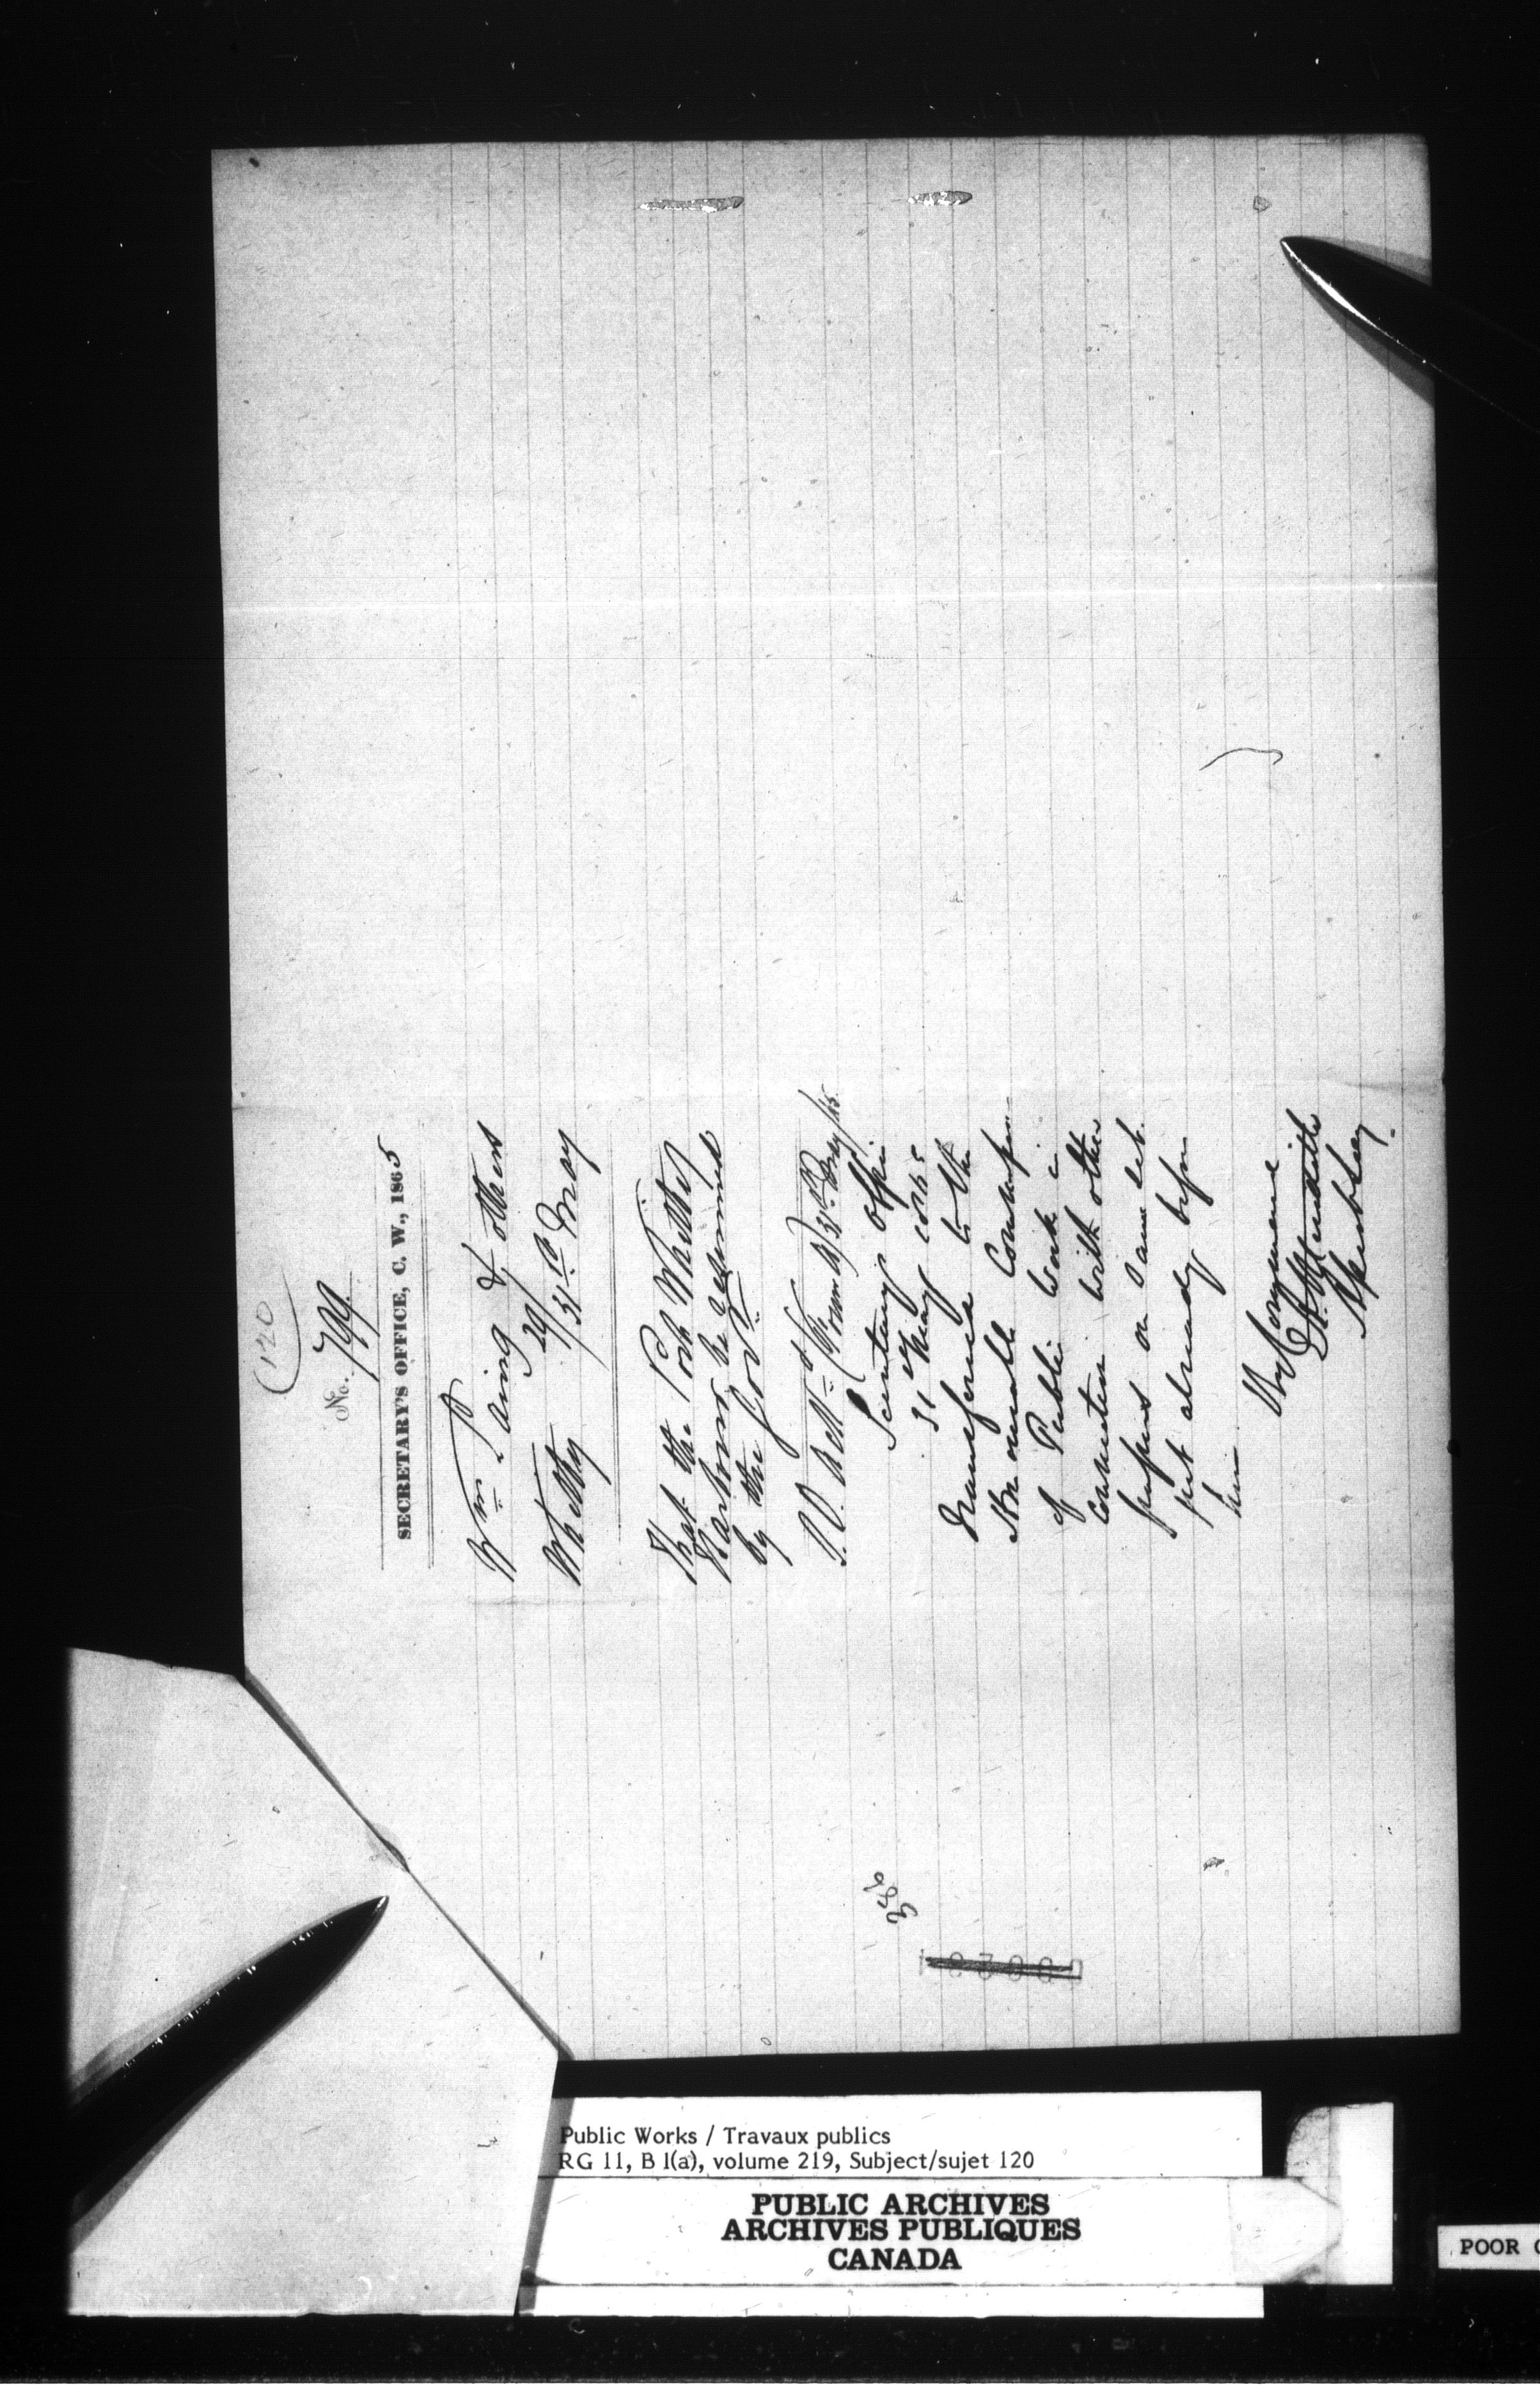 (120)
No. 799.
SECRETARY'S OFFICE, C. W., 1865
Wm. Laing & others
Whitby 29/31st May
That the Port Whitby
Harbour be resumed
by the Govt.
31st May/65.
Secretary's Office
31 May 1865
Transferred to the
Honourable Commissr
of Public Works in
connection with other
papers on same sub.
ject already before
him
By Command
E A Meredith
Public Works / Travaux publics
RG 11, B 1(a), volume 219, Subject/sujet 120
PUBLIC ARCHIVES
ARCHIVES PUBLIQUES
CANADA
POOR